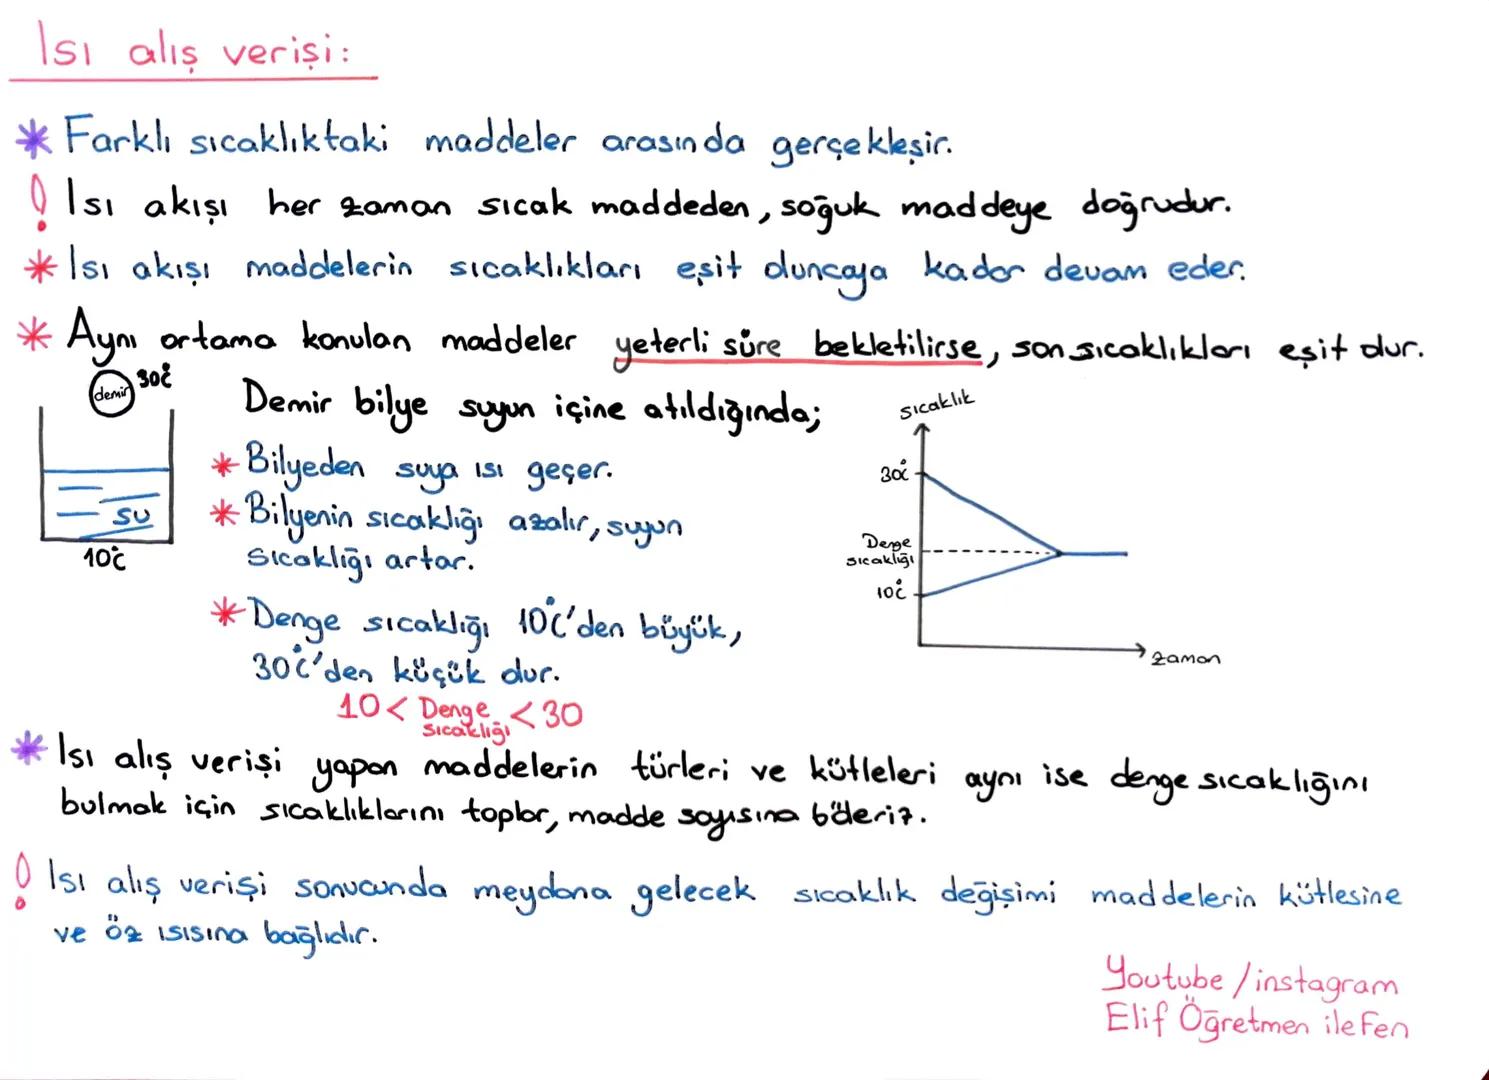 Isı alış verişi:
* Farklı sıcaklıktaki maddeler arasında gerçekleşir.
! Isı akışı her zaman sıcak maddeden, soğuk maddeye doğrudur.
* Isı akışı maddelerin sıcaklıkları eşit oluncaya kadar devam eder.
* Aynı ortama konulan maddeler yeterli süre bekletilirse, son sıcaklıkları eşit olur.
demir 30°C
SU
10°C
Demir bilye suyun içine atıldığında;
* Bilyeden suya ısı geçer.
* Bilyenin sıcaklığı azalır, suyun
sıcaklığı artar.
* Denge sıcaklığı 10°C'den büyük,
30°C'den küçük olur.
10 < Denge sıcaklığı < 30
sıcaklık
30°C
Denge
sıcaklığı
10°C
zaman
* Isı alış verişi yapan maddelerin türleri ve kütleleri aynı ise denge sıcaklığını
bulmak için sıcaklıklarını toplar, madde sayısına böleriz.
! Isı alış verişi sonucunda meydana gelecek sıcaklık değişimi maddelerin kütlesine
ve öz ısısına bağlıdır.
Youtube / instagram
Elif Öğretmen ile Fen